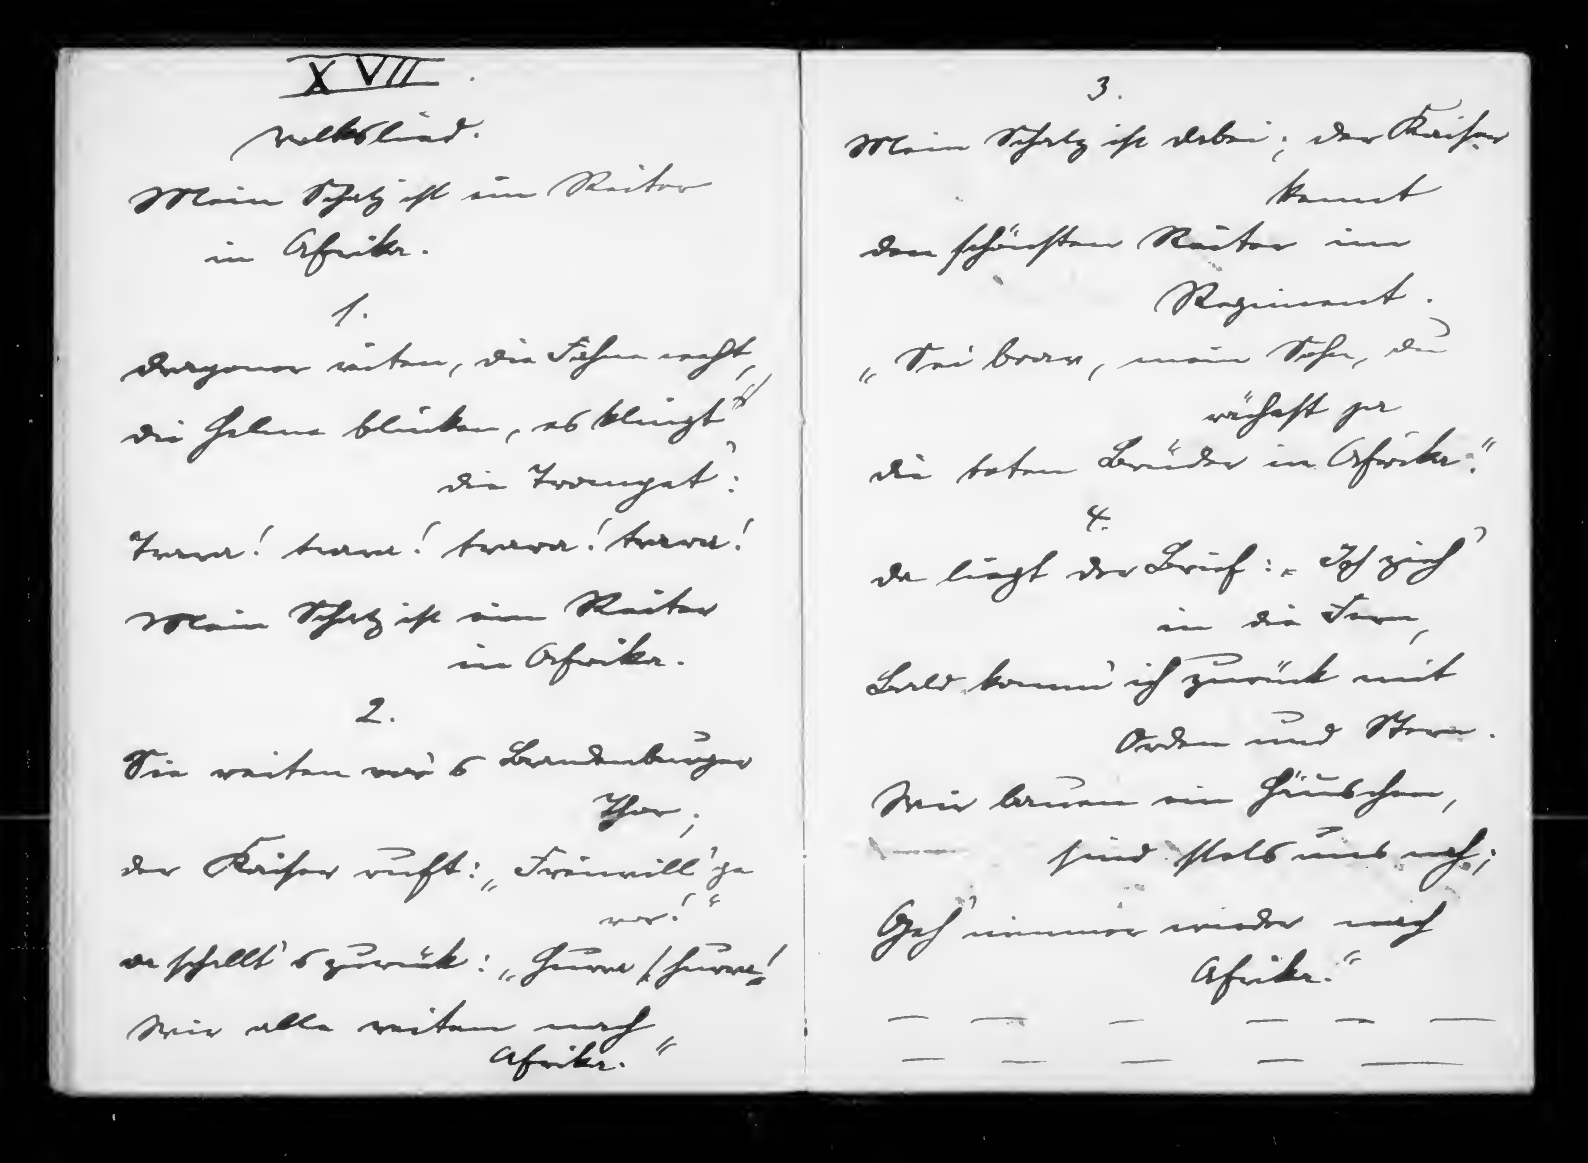 XVII.
Volkslied.
Mein Schatz ist ein Reiter
in Afrika.
1.
Dragoner reiten, die Fahne weht,
die Helme blinken, es klingt
die Trompet':
Trara! trara! trara! trara!
Mein Schatz ist ein Reiter
in Afrika.
2.
Sie reiten vor's Brandenburger
Thor;
der Kaiser ruft: „Freiwill'ge
vor!“
da schellt's zurück: „Hurra! Hurra!
Wir alle reiten nach
Afrika.“
3.
Mein Schatz ist dabei; der Kaiser
kennt
den schönsten Reiter im
Regiment.
„Sei brav, mein Sohn, du
rächest ja
die toten Brüder in Afrika.“
4.
da liegt der Brief: „Ich zieh'
in die Fern,
Bald komm' ich zurück mit
Orden und Stern.
Wir bauen ein Häuschen,
sind stets uns nah;
Geh' nimmer wieder nach
Afrika.“